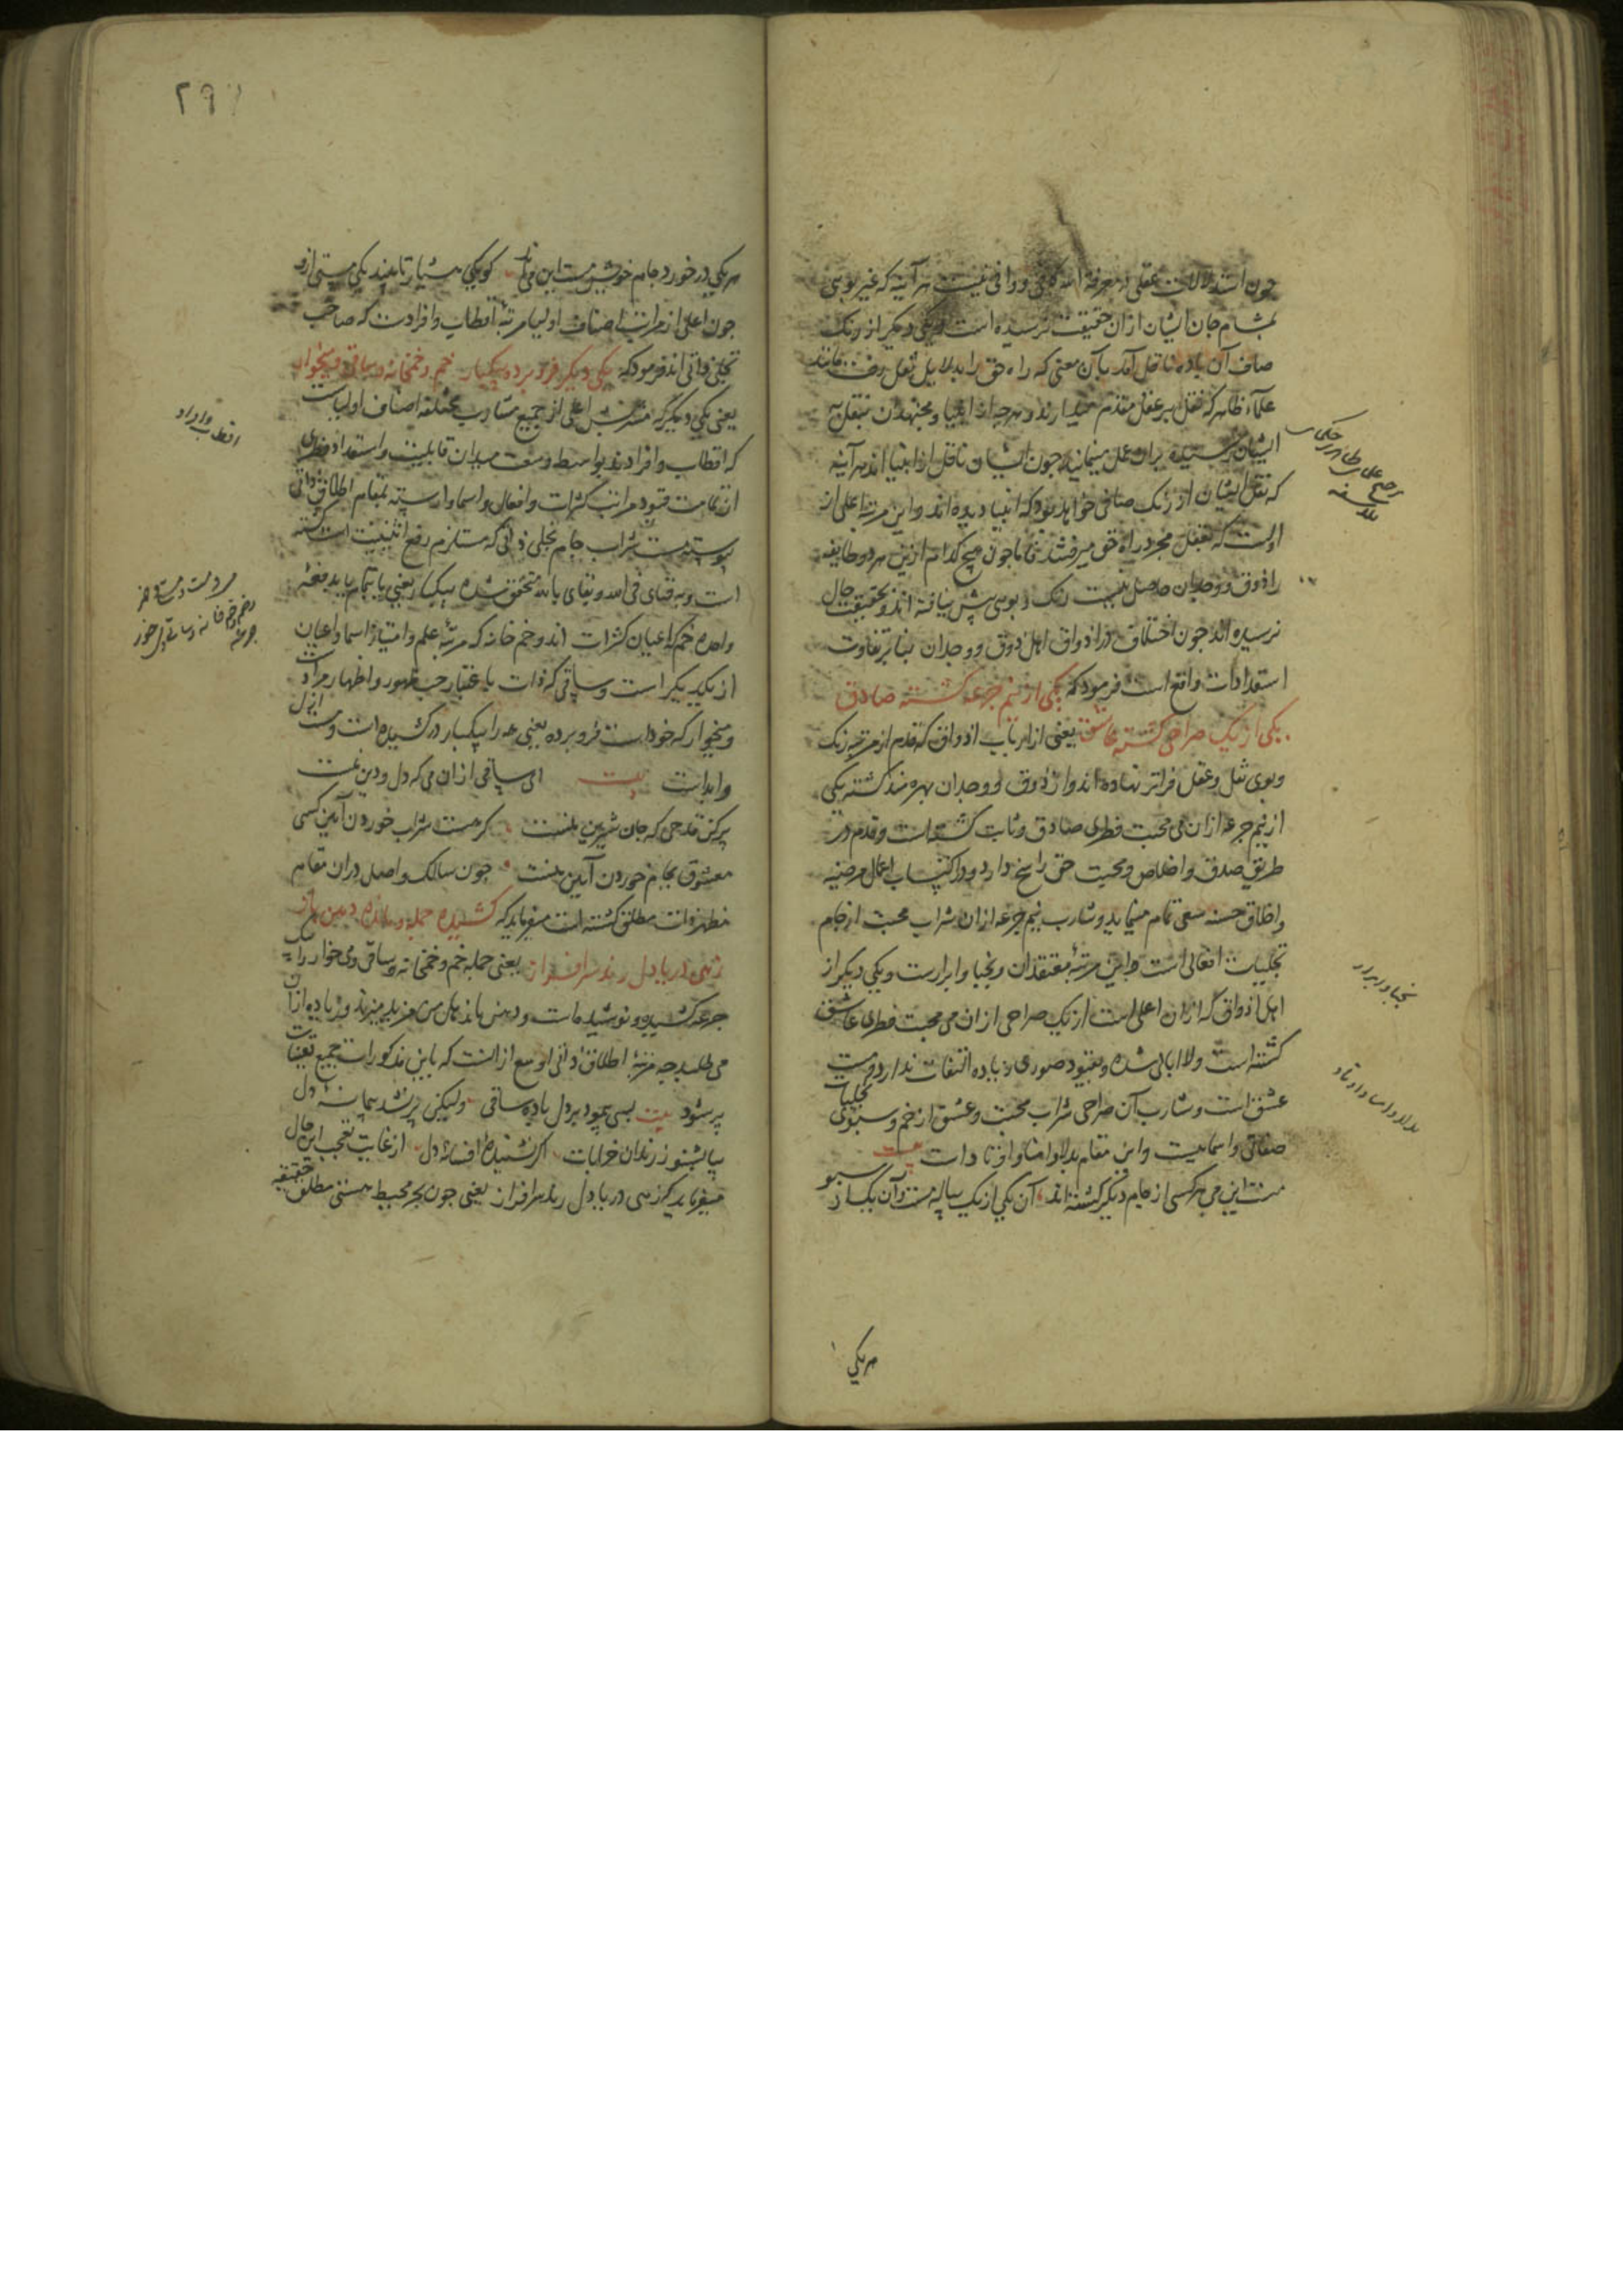 چون استدلالات عقلی در معرفة الله کافی و وافی نیست هر آینه که غیر بویی
بمشام جان ایشان از آن حقیقت نرسیده است و یکی دیگر از رنک
صاف آن باده ناقل آمد بآن معنی که راه حق را بدلایل نقل رفت مانند
علماء ظاهر که نقل را بر عقل مقدم میدارند و هرچه از انبیا و مجتهدان بنقل به
ایشان رسیده بران عمل مینمایند چون ایشان ناقل از انبیا اند هر آینه
که نقل ایشان از رنک صافی خواهد بود که انبیا دیده اند و این مرتبه اعلی از
اولست که بعقل مجرد راه حق میرفتند فاما چون هیچ کدام ازین هر دو طایفه
را ذوق و وجدان حاصل نیست رنک و بویی بیش نیافته اند و بحقیقت حال
نرسیده اند چون اختلاف در اذواق اهل ذوق و وجدان بنا بر تفاوت
استعدادات واقع است فرمود که یکی از نیم جرعه گشته صادق
یکی از یک صراحی گشته عاشق یعنی از ارباب اذواق که قدم از مرتبه رنک
و بوی نقل و عقل فراتر نهاده اند و از ذوق و وجدان بهره مند گشته یکی
از نیم جرعه ازان می محبت فطری صادق و ثابت گشته است و قدم در
طریق صدق و اخلاص و محبت حق راسخ دارد و در اکتساب اعمال مرضیه
و اخلاق حسنه سعی تمام مینماید و شارب نیم جرعه ازان شراب محبت از جام
تجلیات افعالی است و این مرتبهٔ معتقدان و نجبا و ابرارست و یکی دیگر از
اهل اذواق که ازان اعلی است از یک صراحی ازان می محبت فطری عاشق
گشته است و لاابالی شده و بقیود صوری زیاده التفات ندارد و مست
عشق است و شارب آن صراحی شراب محبت و عشق از خم و سبوی تجلیات
صفاتی و اسمائیست و این مقام بدلا و امنا و اوتاد است بیت
مست این می هر کسی از جام دیگر گشته اند آن یکی از یک پیاله مست و آن یک از سبو
هر یکی
نجبا و ابرار
هر یکی در خورد جام خویش مست این می اند کو یکی هشیار تا بیند یکی مستی ازو
چون اعلی از مراتب اصناف اولیا مرتبهٔ اقطاب و افرادست که صاحب
تجلی ذاتی اند فرمود که یکی دیگر فرو برده بیکبار خم و خمخانه و ساقی و میخوار
یعنی یکی دیگر که مشربش اعلی از جمیع مشارب مختلفه اصناف اولیاست
که اقطاب و افرادند بواسطه وسعت میدان قابلیت و استعداد فطری
از تمامت قیود مراتب کثرات و افعال و اسما وارسته بمقام اطلاق ذاتی
پیوسته مست شراب جام تجلی ذاتی که مستلزم رفع اثنینیت است گشته
است و به فنای فی الله و بقای بالله متحقق شده بیکبار یعنی بالتمام یا بدفعهٔ
واحده خم که اعیان کثرات اند و خم خانه که مرتبهٔ علم و امتیاز اسما و اعیان
از یکدیگر است و ساقی که ذات باعتبار حب ظهور و اظهار مراد است
و میخوار که خود است فرو برده یعنی همه را بیکبار درکشیده است و مست ازل
و ابد است بیت ای ساقی ازان می که دل و دین منست
پر کن قدحی که جان شیرین منست گر هست شراب خوردن آیین کسی
معشوق بجام خوردن آیین منست چون سالک واصل دران مقام
مظهر ذات مطلق گشته است میفرماید که کشیده جمله و مانده دهن باز
زهی دریا دل رند سرافراز یعنی جمله خم و خمخانه و ساقی و می خوار را یک
جرعه کشیده و نوشیده است و دهنش باز مانده هل من مزید میزند و زیاده ازان
می طلبد چه مرتبهٔ اطلاق ذاتی اوسع ازانست که باین مذکورات جمیع تعینات
پر شود بیت بسی پیمود بر دل باده ساقی ولیکن پر نشد پیمانهٔ دل
بیا بشنو ز رندان خرابات اگر نشنیدهٔ افسانهٔ دل از غایت تعجب این حال
میفرماید که زهی دریا دل رند سرافراز یعنی چون بحر محیط هستی مطلق حقیقیه